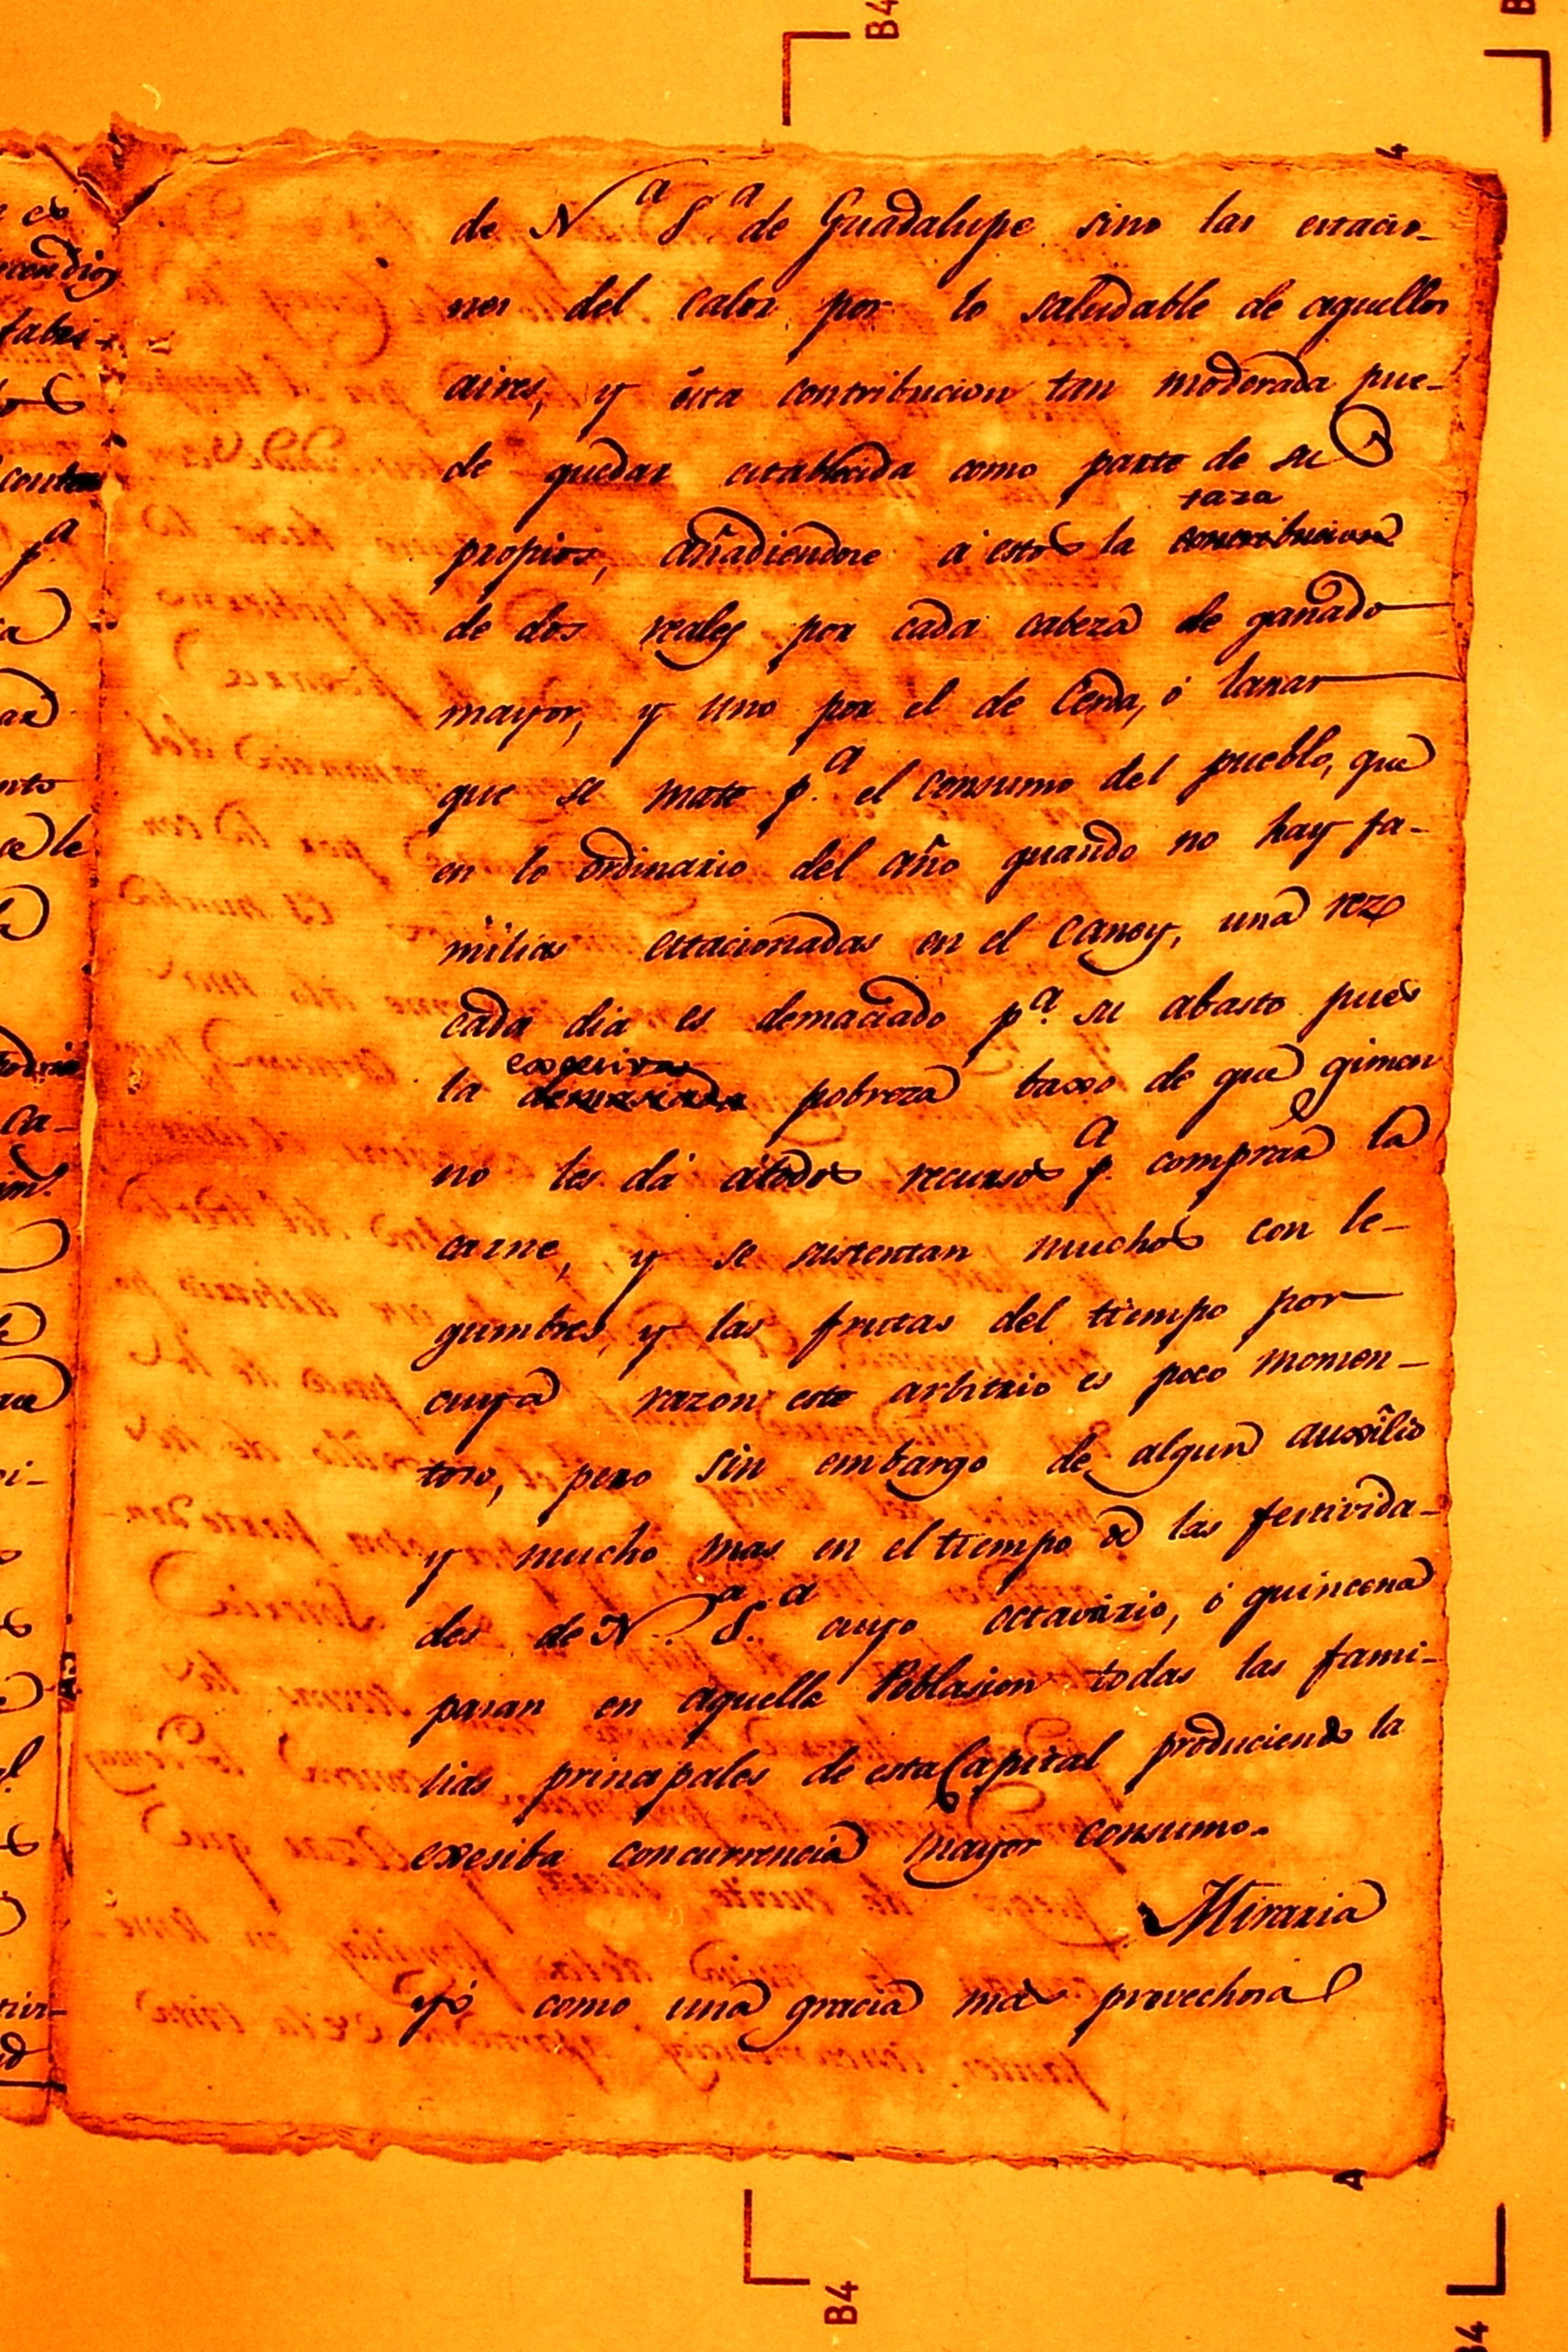 de N^a S^a de Guadalupe sino las estacio-
nes del calor por lo saludable de aquellos
aires, y ésta contribucion tan moderada pue-
de quedar establecida como parte de sus
taza
propios, añadiendose á estos la contribucion
de dos reales por cada cabeza de ganado
mayor, y uno por el de Cerda, ó lanar
que se mate p.^a el consumo del pueblo, que
en lo ordinario del año quando no hay fa-
milias estacionadas en el Caney, una rez
cada dia es demaciado p.^a su abasto pues
excesiva
la demasiada pobreza baxo de que gimen
no les dá átodos recursos p.^a comprar la
carne, y se sustentan muchos con le-
gumbres, y las frutas del tiempo por
cuya razon este arbitrio es poco momen-
toso, pero sin embargo de algun auxilio
y mucho mas en el tiempo de las festivida-
des de N.^a S.^a cuyo octavario, ó quincena
pasan en aquella Poblasion todas las fami-
lias principales de esta Capital produciendo la
exesiba concurrencia mayor consumo.
Miraria
yó como una gracia mas provechosa
B4
B4